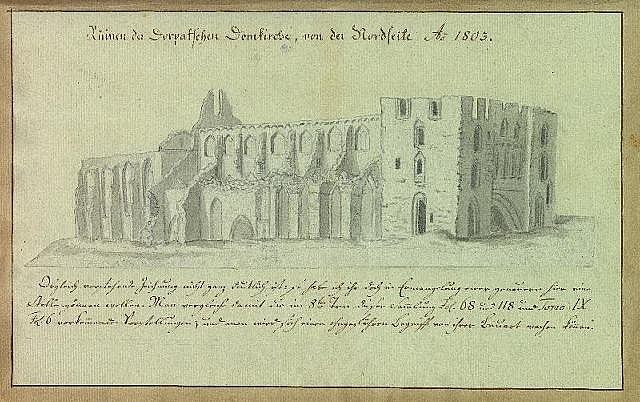 Ruinen der Dorpatschen Domkirche, von der Nordseite Ao 1803.
Obgleich vorstehende Zeichnung nicht ganz deutlich ist, so hab ich ihr doch in Ermangelung einer genauern hier eine
Stelle können wollen. Man vergleiche damit die im 8ten Tom dieser Samlung fol. 68 und 118 und Tomo IX
vorkommende Vorstellungen, und man wird sich einen ohngefähren Begriff von ihrer Bauart machen können.